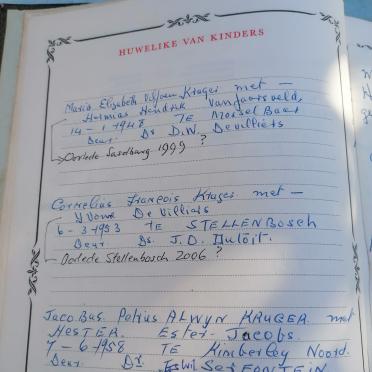 HUWELIKE VAN KINDERS
Maria Elizabeth Viljoen Kruger met —
Hermias Hendrik Van Jaarsveld,
14 - 1 - 1948 TE Mossel Baai
Deur Ds D.W. De Villiers
Oorlede Sasolburg 1999 ?
Cornelius Francois Kruger met —
Yvone De Villiers
6 - 3 - 1953 TE STELLENBOSCH
Deur Ds. J.D. Dutoit.
Oorlede Stellenbosch 2006 ?
Jacobus Petrus ALWYN KRUGER met
HESTER Ester Jacobs.
7 - 6 - 1958 TE Kimberley Noord.
Deur Ds. SERFONTEIN